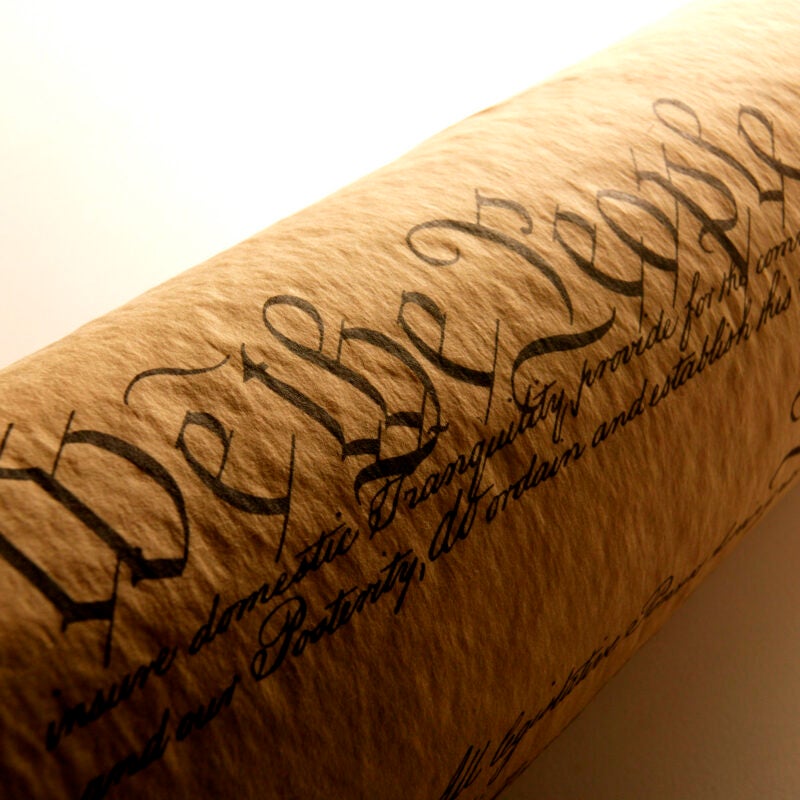 We the People
insure domestic Tranquility, provide for the com
and our Posterity, do ordain and establish this
All legislative